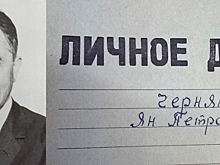 ЛИЧНОЕ Д
Черня
Ян Петро